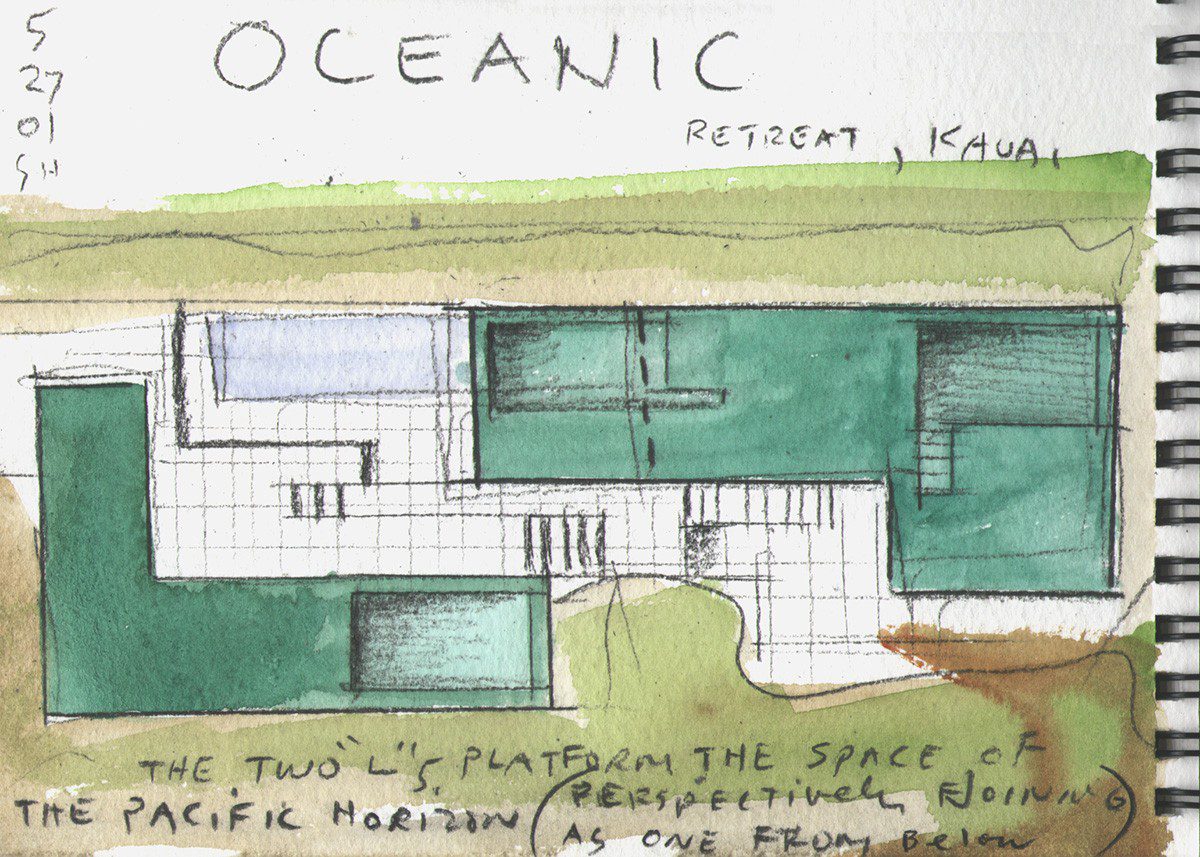 5
27
01
SH
OCEANIC
RETREAT, KAUAI
THE TWO "L"s PLATFORM THE SPACE OF
THE PACIFIC HORIZON (PERSPECTIVELY
AS ONE FROM BELOW)